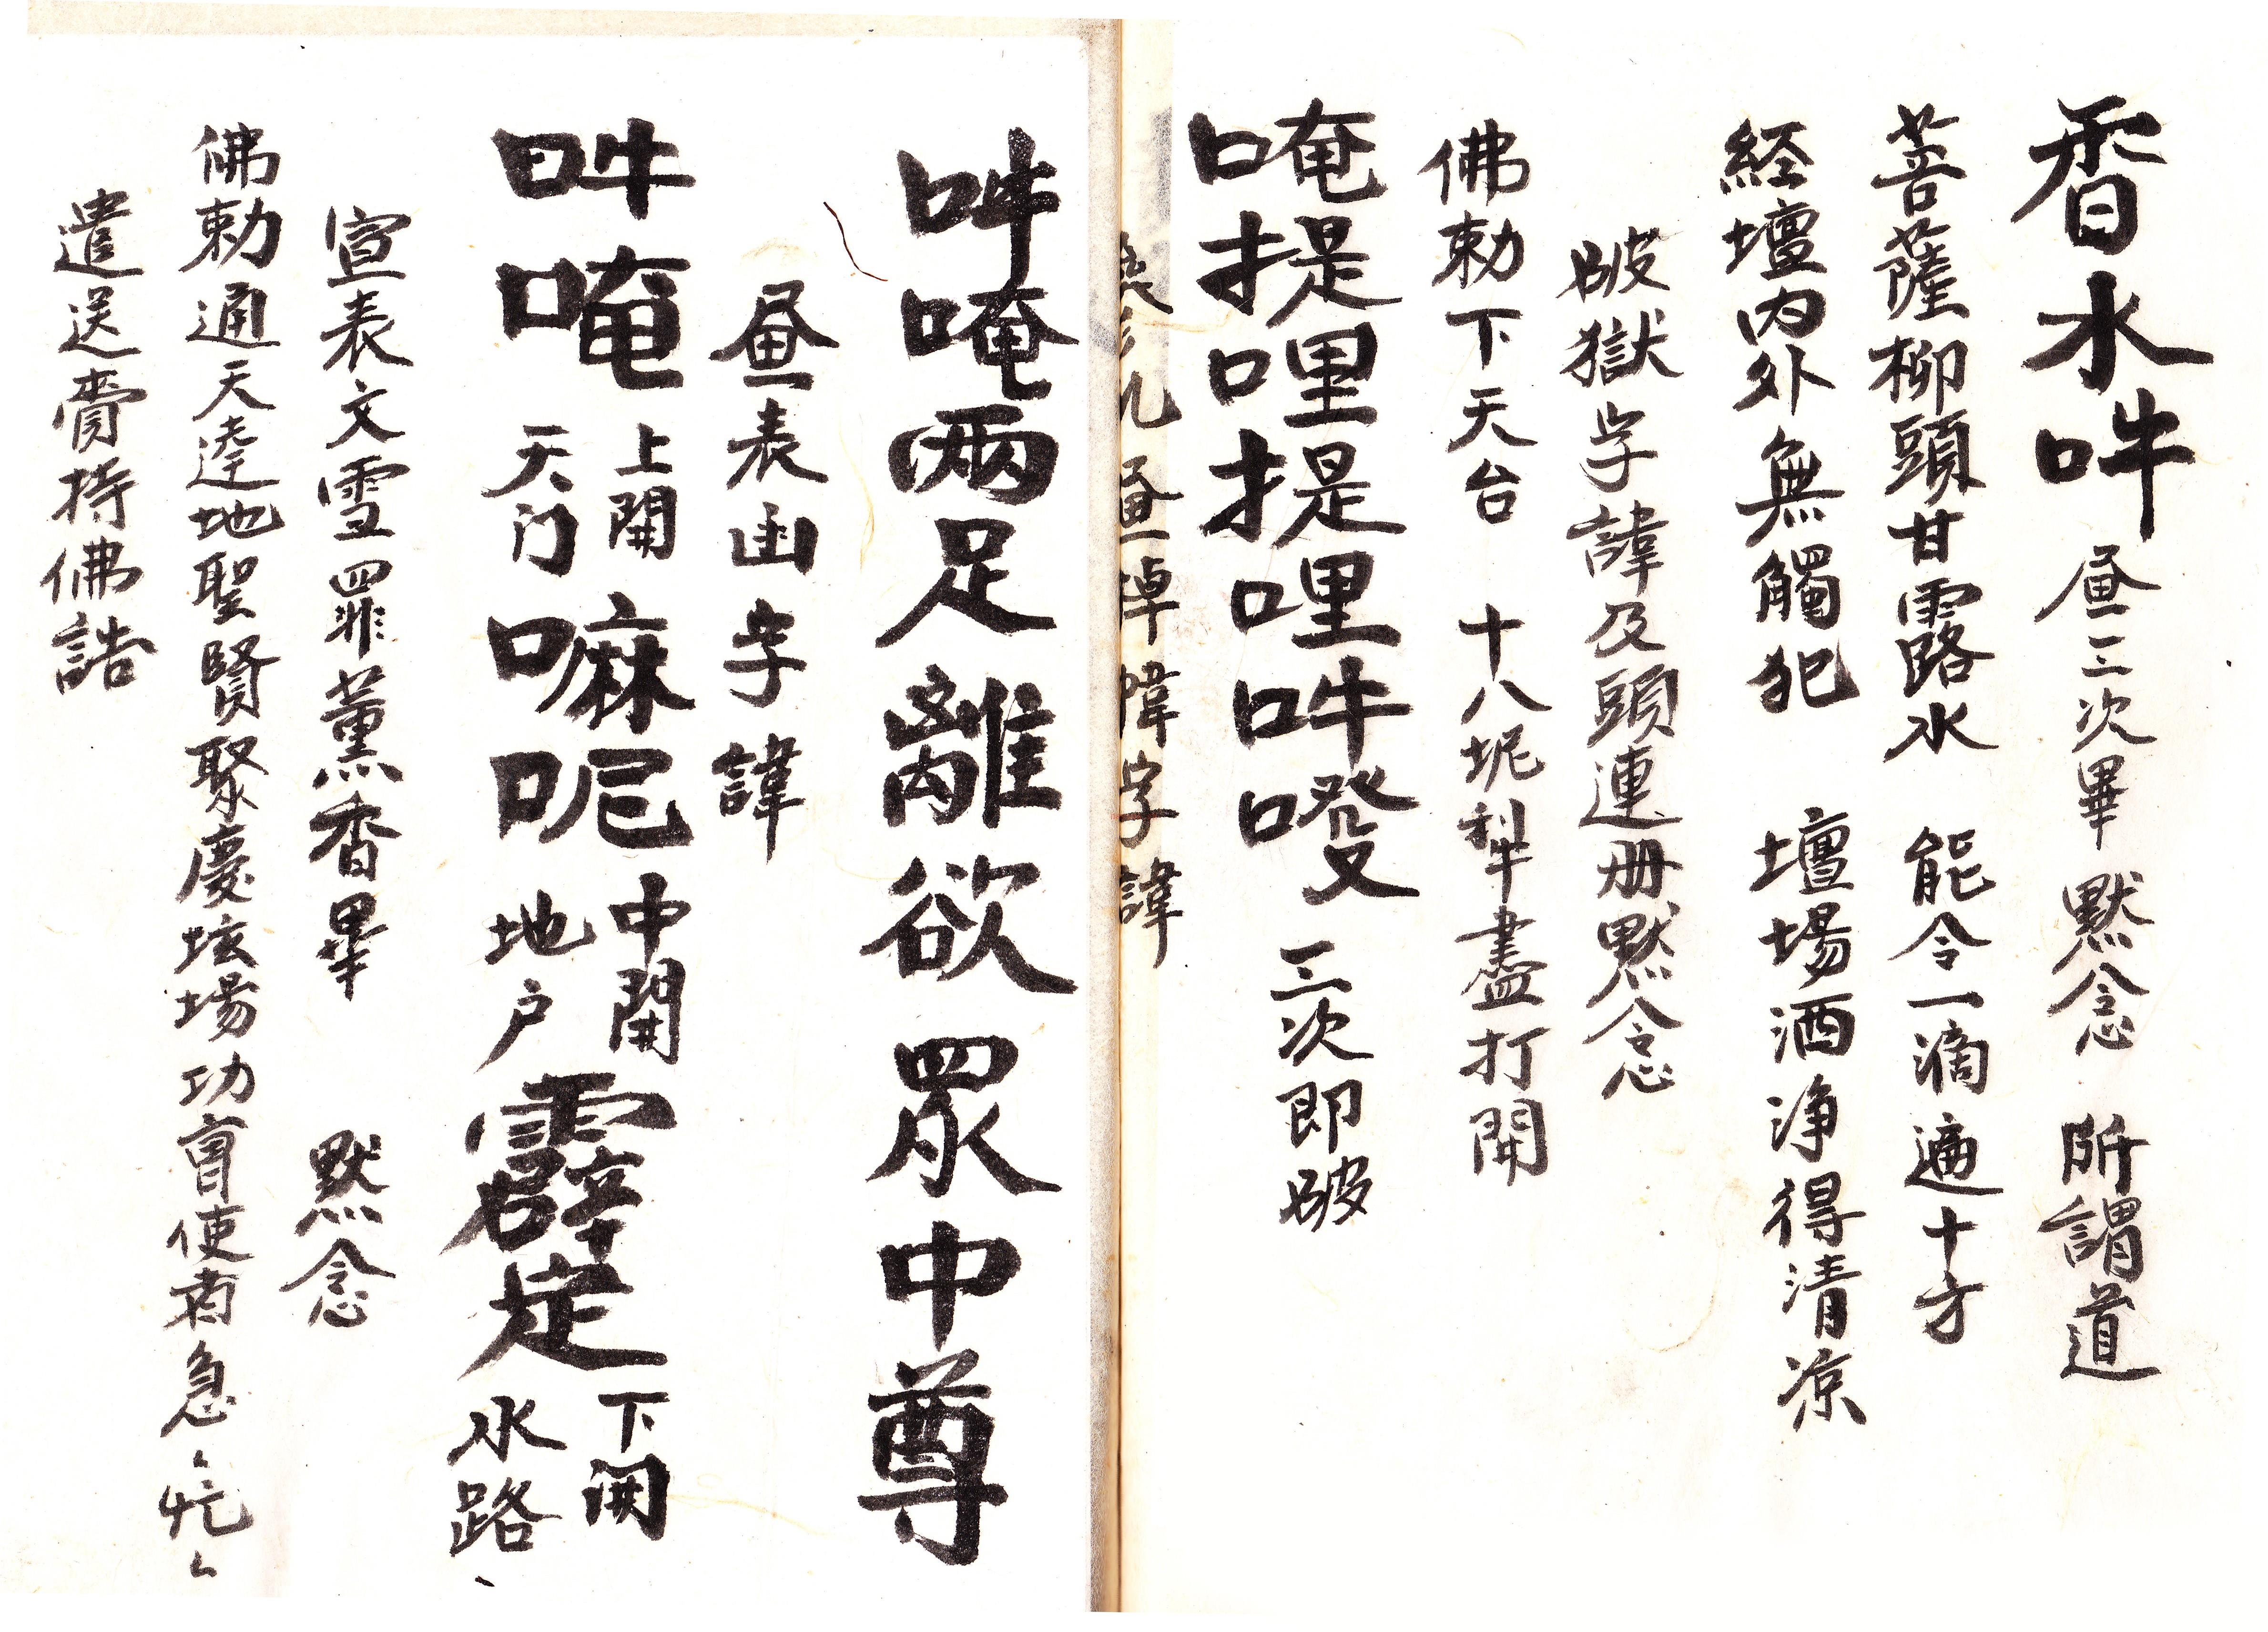 香水吽 畫三次畢 默念 所謂道
菩薩柳頭甘露水 能令一滴遍十方
経壇內外無觸犯 壇場洒净得清凉
破獄字諱及頭連册默念
佛勅下天台 十八坭犁盡打開
唵捉哩捉哩吽㗳 三次即破
畫 諱字諱
吽唵兩足離欲眾中尊
畫表函字諱
吽唵 上開天门 嘛呢 中開地户 霹㝎 下開水路
宣表文雪罪薰香畢 默念
佛勅通天達地聖賢聚慶坛場功曹使者急々忙々
遣送賫持佛誥